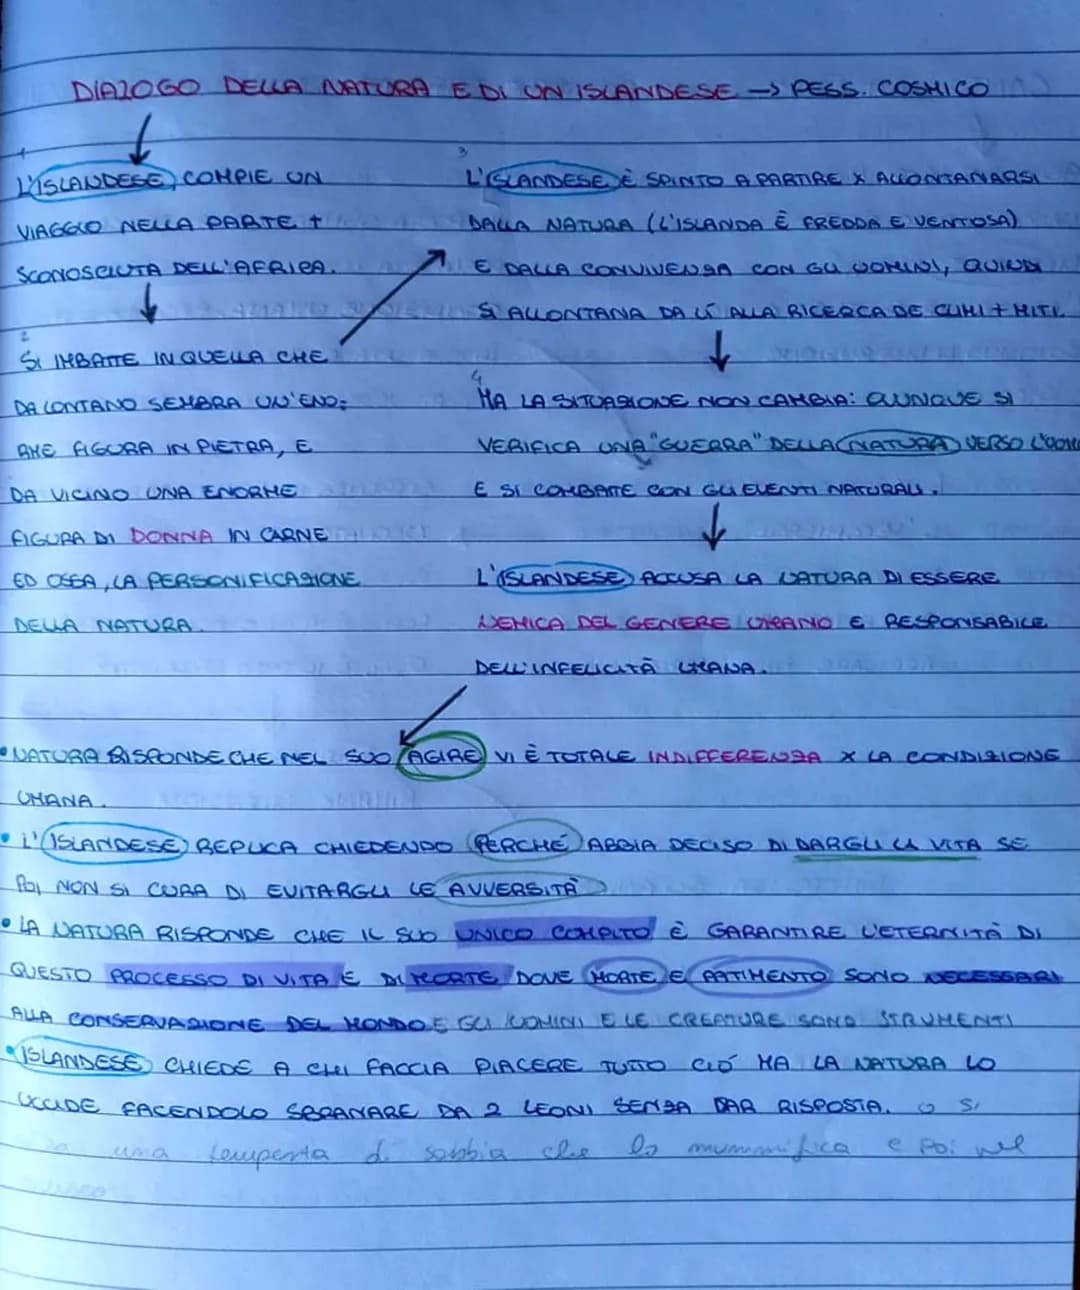 DIALOGO DELLA NATURA E DI UN ISLANDESE → PESS. COSMICO
1
L'ISLANDESE COMPIE UN
VIAGGIO NELLA PARTE +
SCONOSCIUTA DELL'AFRICA.
2
SI IMBATTE IN QUELLA CHE
DA LONTANO SEMBRA UN'ENOR-
ME FIGURA IN PIETRA, E
DA VICINO UNA ENORME
FIGURA DI DONNA IN CARNE
ED OSSA, LA PERSONIFICAZIONE
DELLA NATURA.
3
L'ISLANDESE È SPINTO A PARTIRE X ALLONTANARSI
DALLA NATURA (L'ISLANDA È FREDDA E VENTOSA)
E DALLA CONVIVENZA CON GLI UOMINI, QUINDI
SI ALLONTANA DA LÌ ALLA RICERCA DE CLIMI + MITI.
4
MA LA SITUAZIONE NON CAMBIA: OUNQUE SI
VERIFICA UNA "GUERRA" DELLA NATURA VERSO L'UOMO
E SI COMBATTE CON GLI ELENTI NATURALI.
L'ISLANDESE ACCUSA LA NATURA DI ESSERE
NEMICA DEL GENERE UMANO E RESPONSABILE
DELL'INFELICITÀ UMANA.
• NATURA RISPONDE CHE NEL SUO AGIRE VI È TOTALE INDIFFERENZA X LA CONDIZIONE
UMANA.
• L'ISLANDESE REPLICA CHIEDENDO PERCHÉ ABBIA DECISO DI DARGLI LA VITA SE
POI NON SI CURA DI EVITARGLI LE AVVERSITÀ
• LA NATURA RISPONDE CHE IL SUO UNICO COMPITO È GARANTIRE L'ETERNITÀ DI
QUESTO PROCESSO DI VITA E DI MORTE DOVE MORTE E PATIMENTO SONO NECESSARI
ALLA CONSERVAZIONE DEL MONDO E GLI UOMINI E LE CREATURE SONO STRUMENTI
• ISLANDESE CHIEDE A CHI FACCIA PIACERE TUTTO CIÓ MA LA NATURA LO
UCCIDE FACENDOLO SBRANARE DA 2 LEONI SENZA DAR RISPOSTA. O SI
una tempesta di sabbia che lo mummifica e poi nel